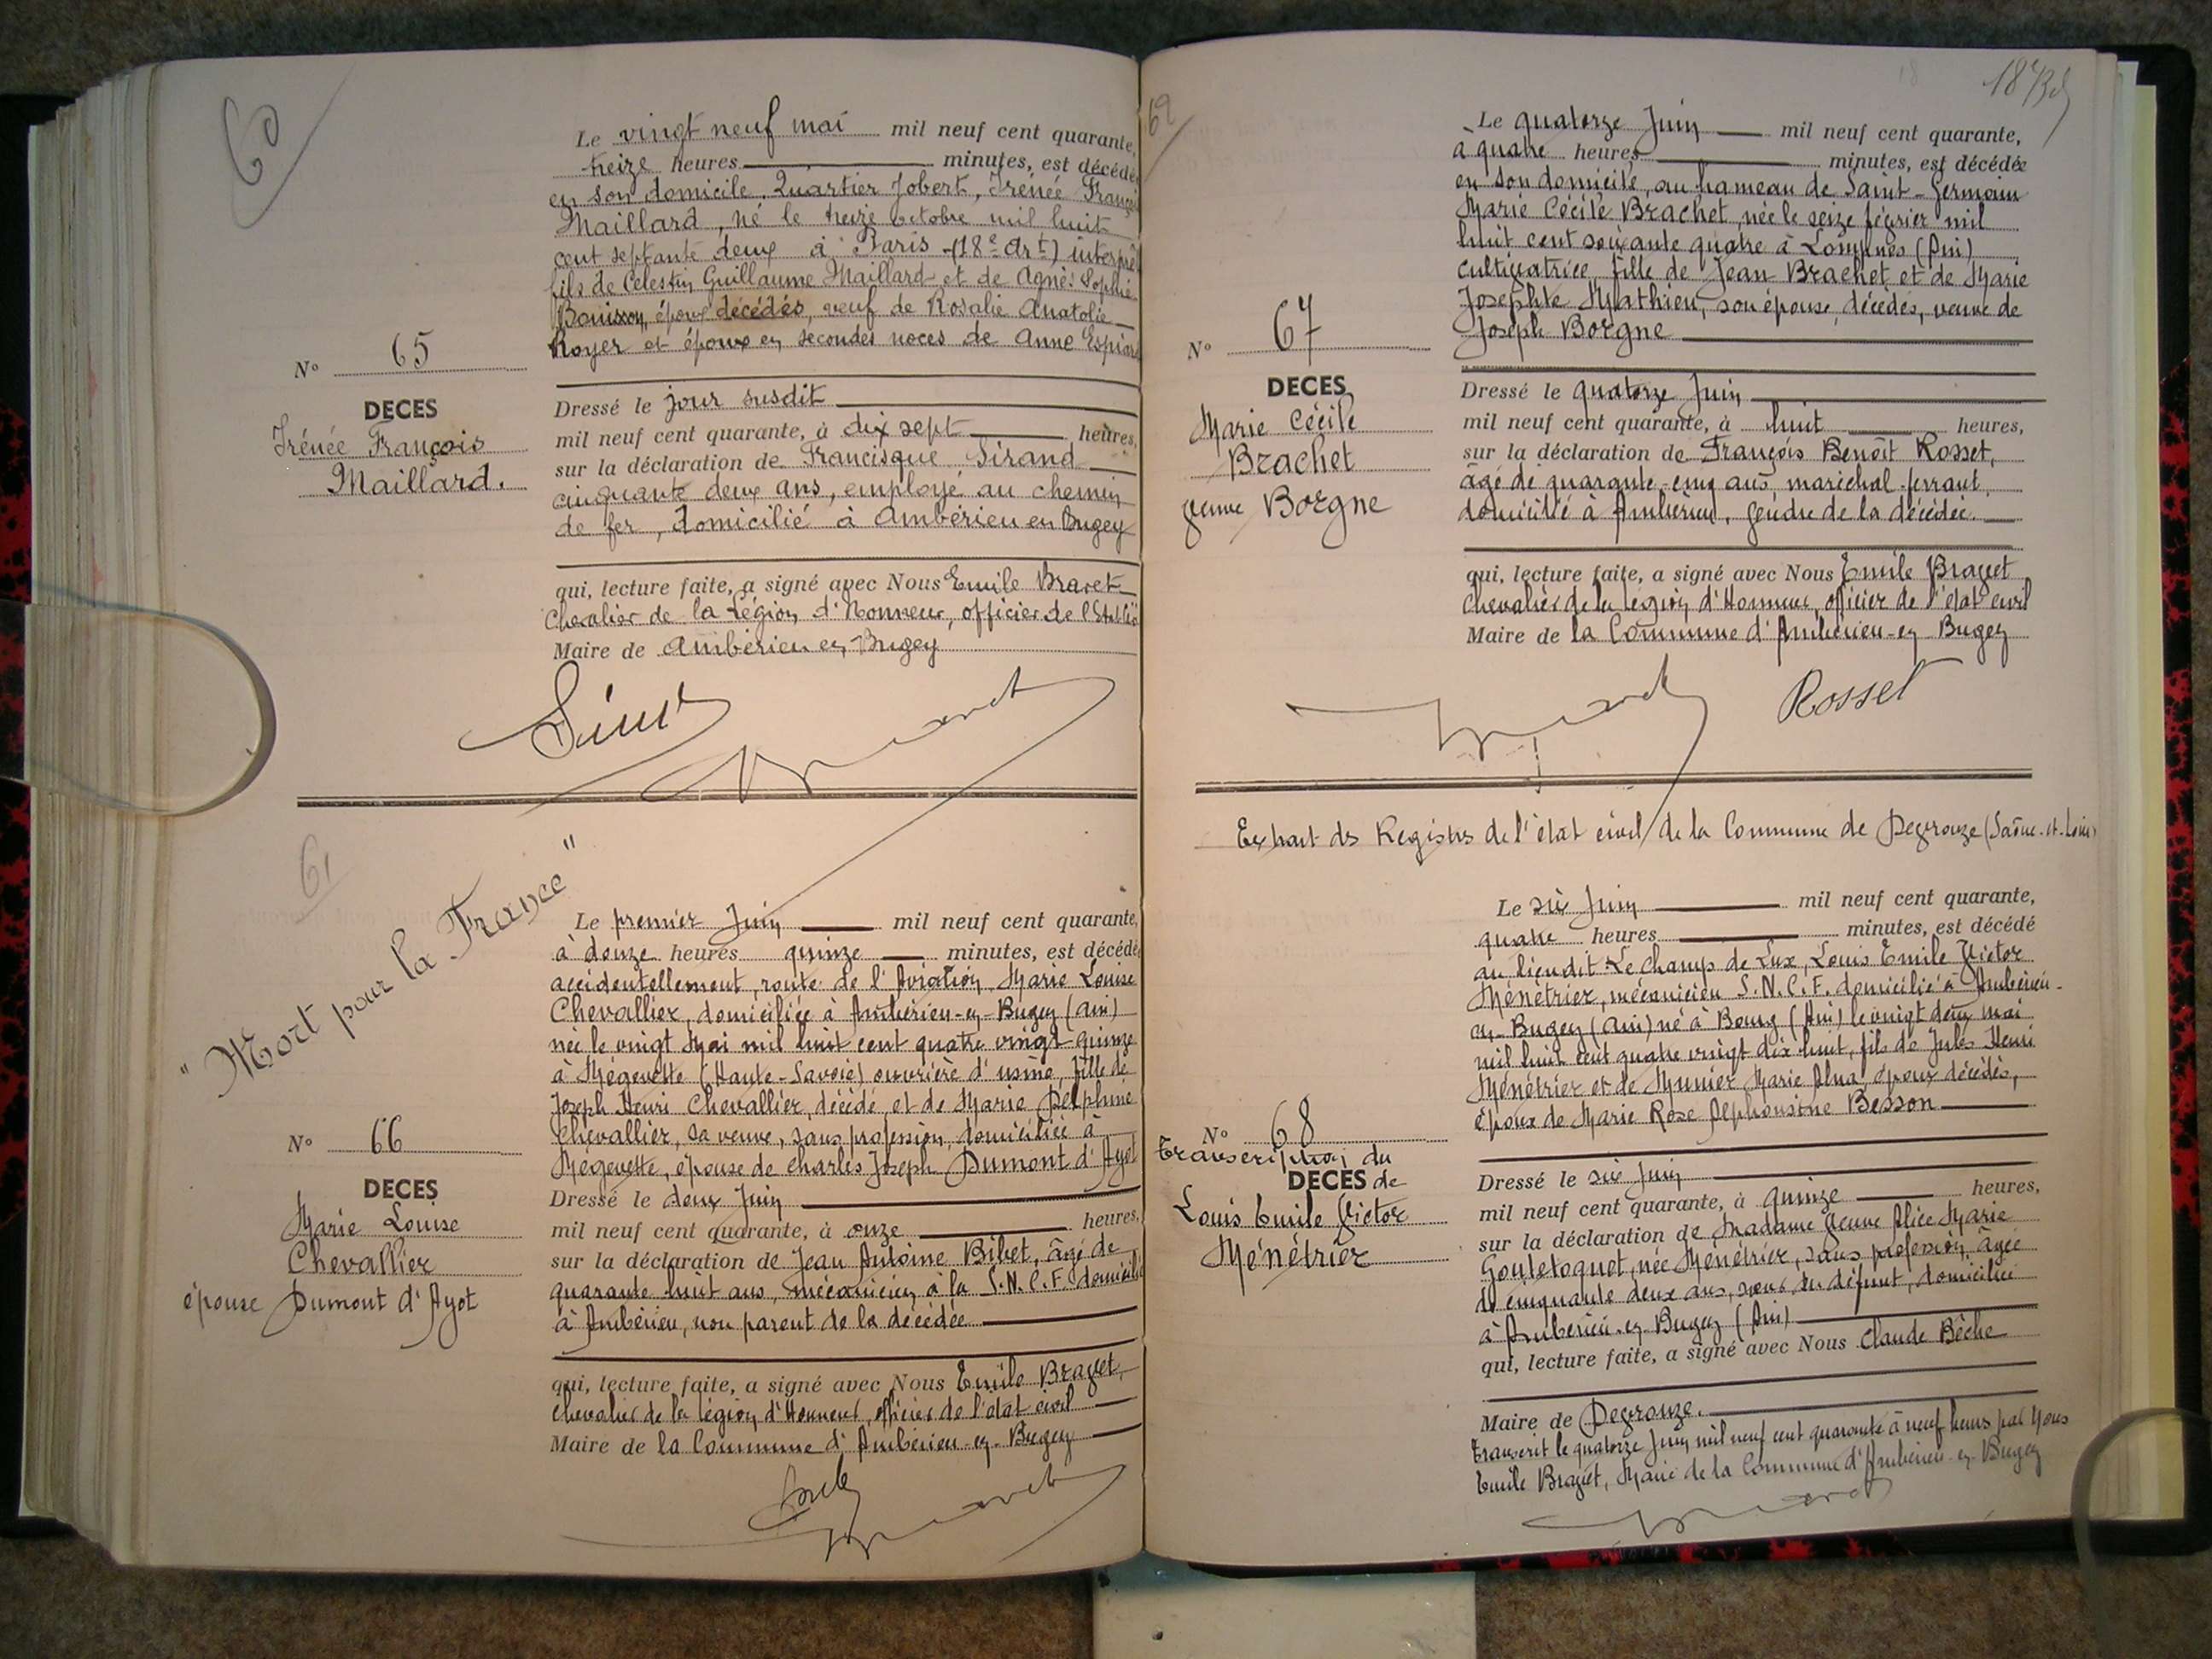 60
Le vingt neuf mai mil neuf cent quarante,
treize heures minutes, est décédé
en son domicile, Quartier Jobert, Irénée François
Maillard, né le treize octobre mil huit
cent septante deux à Paris (18e Art)
fils de Célestin Guillaume Maillard et de Agnès Sophie
Bouisson, époux décédés, veuf de Rosalie Anatolie
Royer et époux en secondes noces de Anne
N° 65
DECES
Irénée François
Maillard.
Dressé le jour susdit
mil neuf cent quarante, à dix sept heures,
sur la déclaration de Francisque Sirand
cinquante deux ans, employé au chemin
de fer, domicilié à Ambérieu en Bugey
qui, lecture faite, a signé avec Nous Emile Bravet
Chevalier de la Légion d'Honneur, officier de l'
Maire de Ambérieu en Bugey
61
"Mort pour la France"
Le premier Juin mil neuf cent quarante,
à douze heures quinze minutes, est décédée
accidentellement, route de l'Aviation, Marie Louise
Chevallier, domiciliée à Ambérieu-en-Bugey (Ain)
née le vingt Mai mil huit cent quatre vingt quinze
à Mégevette (Haute-Savoie) ouvrière d'usine, fille de
Joseph Henri Chevallier, décédé et de Marie Delphine
Chevallier, sa veuve, sans profession, domiciliée à
Mégevette, épouse de Charles Joseph Dumont d'Ayot
N° 66
DECES
Marie Louise
Chevallier
épouse Dumont d'Ayot
Dressé le deux Juin
mil neuf cent quarante, à onze heures,
sur la déclaration de Jean Antoine Bibet, âgé de
quarante huit ans, mécanicien à la S.N.C.F. domicilié
à Ambérieu, non parent de la décédée
qui, lecture faite, a signé avec Nous Emile Bravet,
chevalier de la légion d'Honneur, officier de l'état civil
Maire de la Commune d'Ambérieu-en-Bugey
62
Le quatorze Juin mil neuf cent quarante,
à quatre heures minutes, est décédée
en son domicile, au hameau de Saint-Germain
Marie Cécile Brachet, née le seize février mil
huit cent soixante quatre à Lompnes (Ain)
cultivatrice, fille de Jean Brachet et de Marie
Josephte Mathieu, son épouse, décédés, veuve de
Joseph Borgne
N° 67
DECES
Marie Cécile
Brachet
veuve Borgne
Dressé le quatorze Juin
mil neuf cent quarante, à huit heures,
sur la déclaration de François Benoît Rosset,
âgé de quarante-cinq ans, maréchal-ferrant,
domicilié à Ambérieu, gendre de la décédée.
qui, lecture faite, a signé avec Nous Emile Bravet
Chevalier de la légion d'Honneur, officier de l'état civil
Maire de la Commune d'Ambérieu-en-Bugey
Rosset
Extrait des Registres de l'état civil de la Commune de Devrouze (Saône-et-Loire)
Le six Juin mil neuf cent quarante,
quatre heures minutes, est décédé
au lieu dit Le champ de Lux, Louis Emile Victor
Ménétrier, mécanicien S.N.C.F. domicilié à Ambérieu-
en-Bugey (Ain) né à Bourg (Ain) le vingt deux mai
mil huit cent quatre vingt dix huit, fils de Jules Henri
Ménétrier et de Munier Marie époux décédés,
époux de Marie Rose Alphonsine Besson
N° 68
transcription du
DECES de
Louis Emile Victor
Ménétrier
Dressé le six Juin
mil neuf cent quarante, à quinze heures,
sur la déclaration de Madame Veuve Alice Marie
Gouletoquet, née Ménétrier, sans profession, âgée
de cinquante deux ans, sœur du défunt, domiciliée
à Ambérieu-en-Bugey (Ain)
qui, lecture faite, a signé avec Nous Claude Bêche
Maire de Devrouze.
transcrit le quatorze Juin mil neuf cent quarante à neuf heures par Nous
Emile Bravet, Maire de la Commune d'Ambérieu-en-Bugey